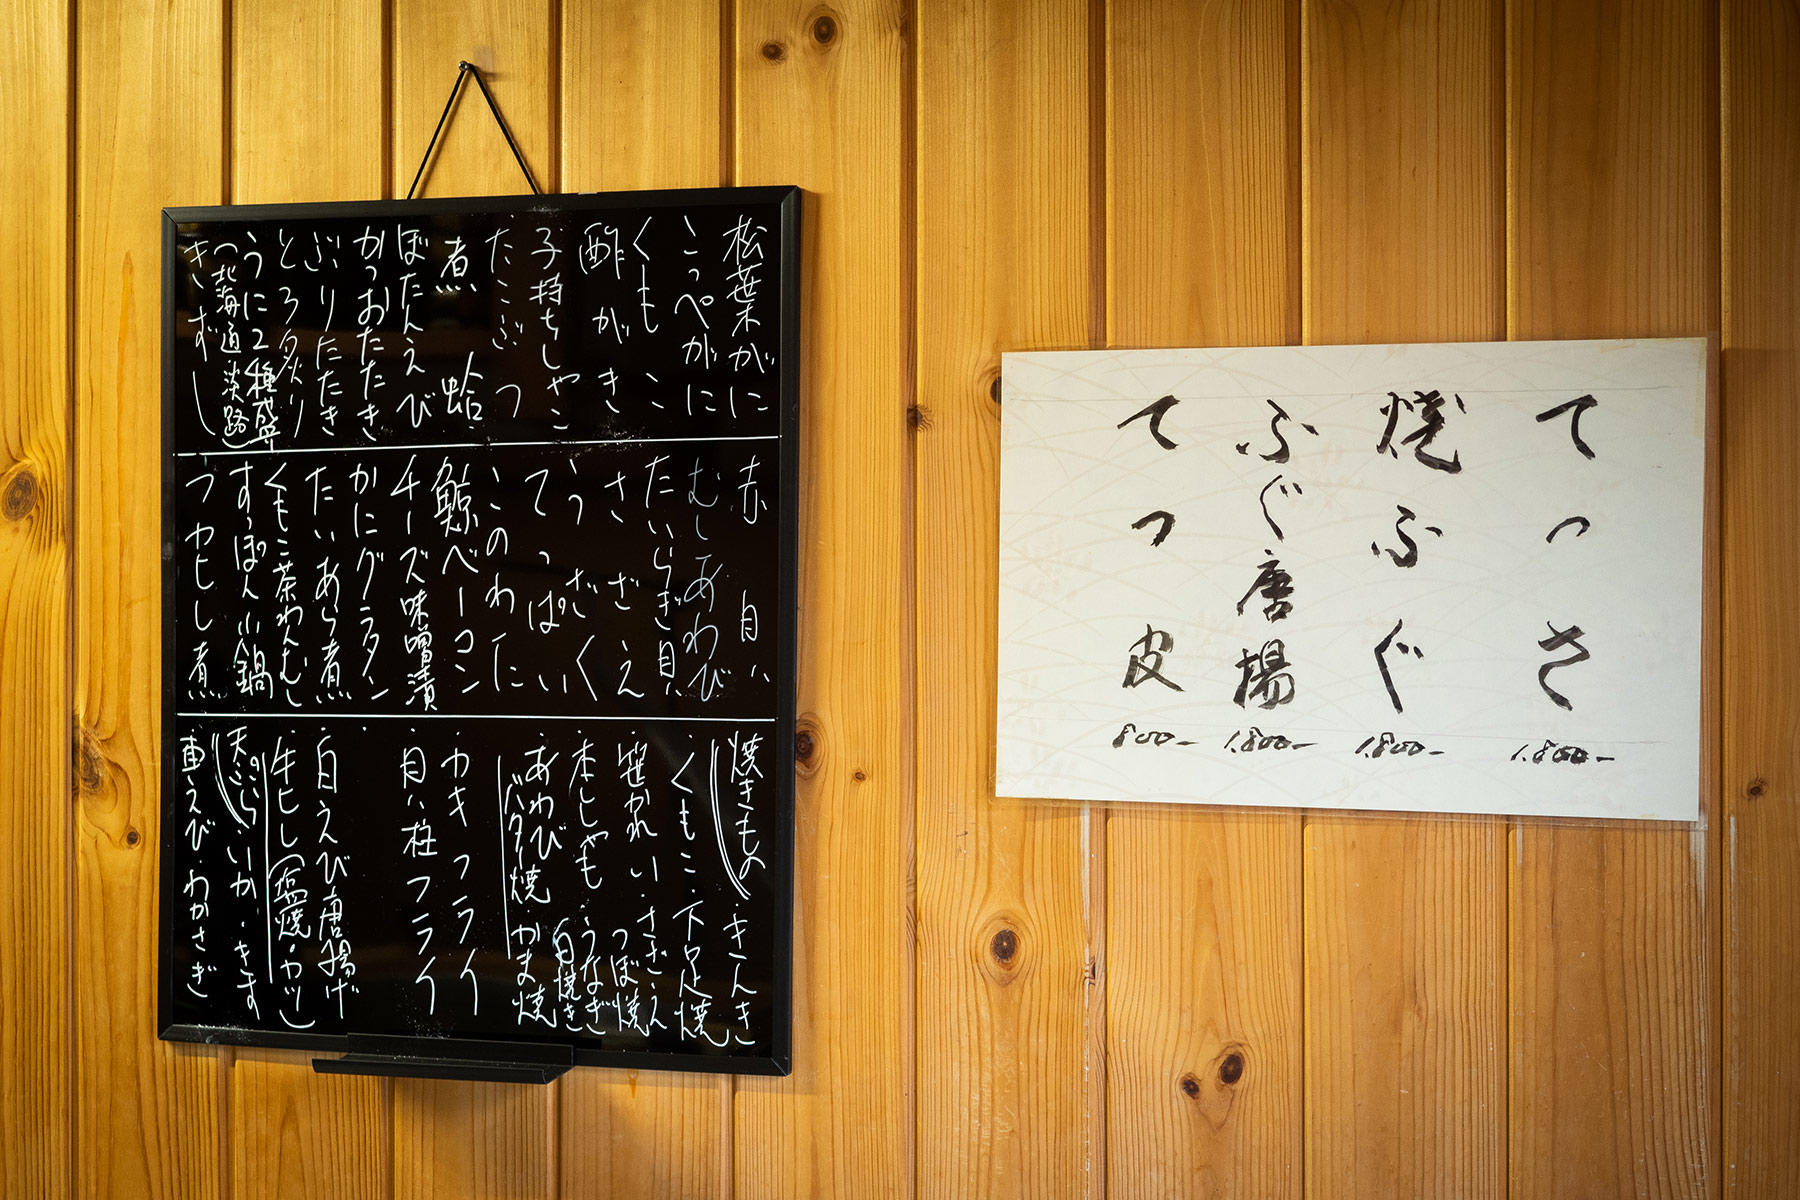 松葉がに
こっぺがに
くもこ
酢がき
子持ちしゃこ
たこぶつ
煮蛤
ぼたんえび
かつおたたき
ぶりたたき
とろ炙り
うに2種盛
(北海道・淡路)
きずし
赤貝
むしあわび
たいらぎ貝
さざえ
うざく
てっぱい
このわた
鯨ベーコン
チーズ味噌漬
かにグラタン
たいあら煮
くもこ茶わんむし
すっぽん小鍋
カヒレ煮
焼きもの・きんき
・くもこ・下足焼
・笹かれい・さざえつぼ焼
・本ししゃも・うなぎ白焼き
・あわびバター焼・かま焼
・カキフライ
貝柱フライ
・白えび唐揚げ
・牛ヒレ(塩焼・カツ)
天ぷら・いか・きす
・車えび・わかさぎ
てっさ 1.800-
焼ふぐ 1.800-
ふぐ唐揚 1.800-
てつ皮 800-